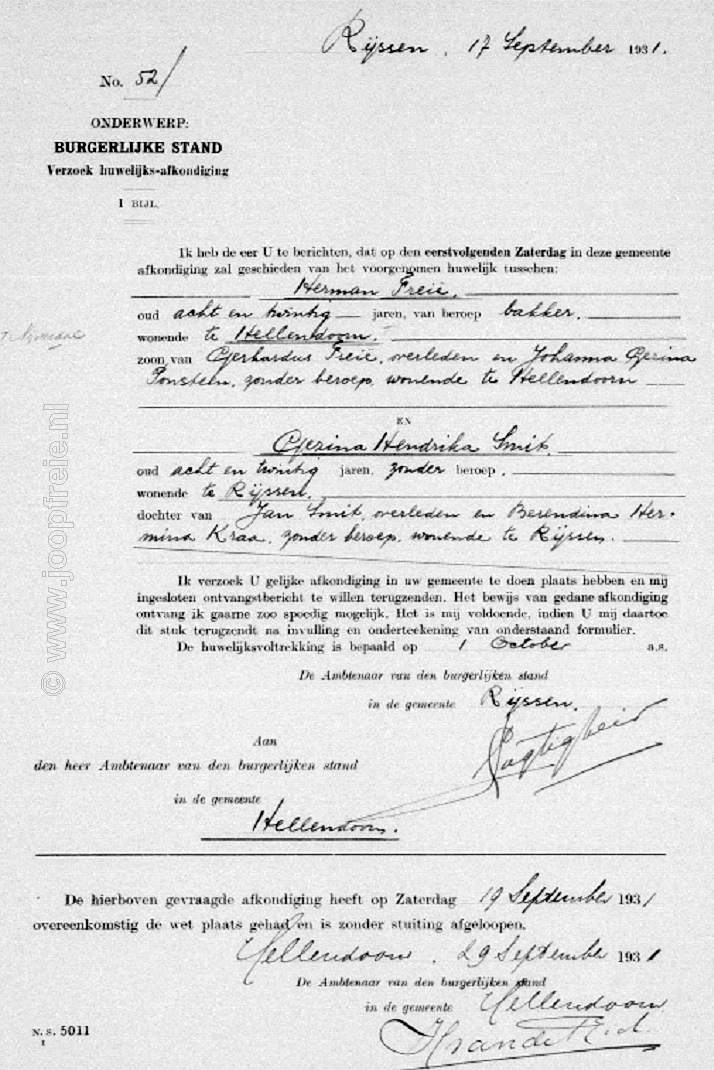 Rijssen, 17 September 1931.
No. 52/
ONDERWERP:
BURGERLIJKE STAND
Verzoek huwelijks-afkondiging
1 BIJL.
Ik heb de eer U te berichten, dat op den eerstvolgenden Zaterdag in deze gemeente
afkondiging zal geschieden van het voorgenomen huwelijk tusschen:
Herman Freie,
oud acht en twintig jaren, van beroep bakker,
wonende te Hellendoorn,
zoon van Gerhardus Freie, overleden en Johanna Gezina
Ponsteen, zonder beroep, wonende te Hellendoorn
EN
Gezina Hendrika Smit,
oud acht en twintig jaren, zonder beroep,
wonende te Rijssen,
dochter van Jan Smit, overleden en Berendina Her-
mina Kraa, zonder beroep, wonende te Rijssen.
Ik verzoek U gelijke afkondiging in uw gemeente te doen plaats hebben en mij
ingesloten ontvangstbericht te willen terugzenden. Het bewijs van gedane afkondiging
ontvang ik gaarne zoo spoedig mogelijk. Het is mij voldoende, indien U mij daartoe
dit stuk terugzendt na invulling en onderteekening van onderstaand formulier.
De huwelijksvoltrekking is bepaald op 1 October a.s.
De Ambtenaar van den burgerlijken stand
in de gemeente Rijssen,
Aan
den heer Ambtenaar van den burgerlijken stand
in de gemeente
Hellendoorn.
De hierboven gevraagde afkondiging heeft op Zaterdag 19 September 1931
overeenkomstig de wet plaats gehad en is zonder stuiting afgeloopen.
Hellendoorn, 29 September 1931
De Ambtenaar van den burgerlijken stand
in de gemeente Hellendoorn
N. S. 5011
1
© www.joopfreie.nl